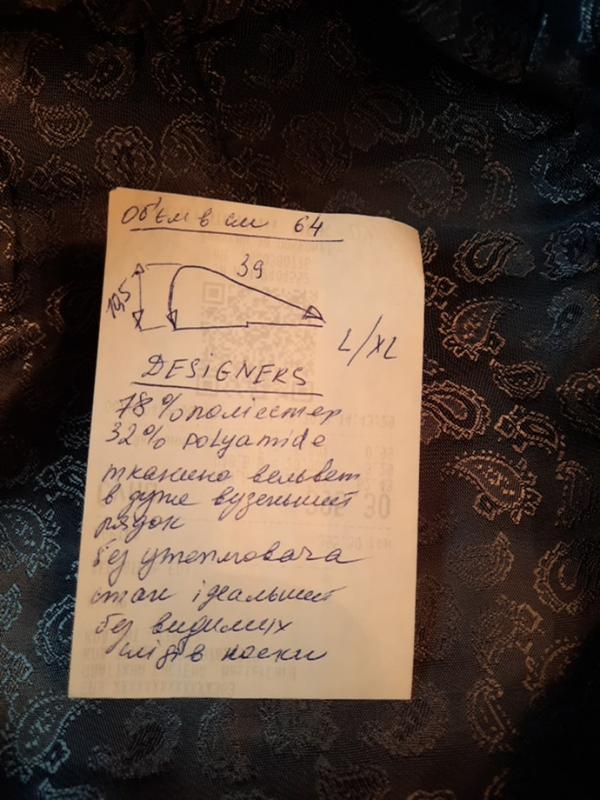 Обєм в см 64
39
19,5
L/XL
DESIGNERS
78% полієстер
32% polyamide
тканина вельвет
в дуже вузенький
рядок
без утеплювача
стан ідеальний
без видимих
слідів носки